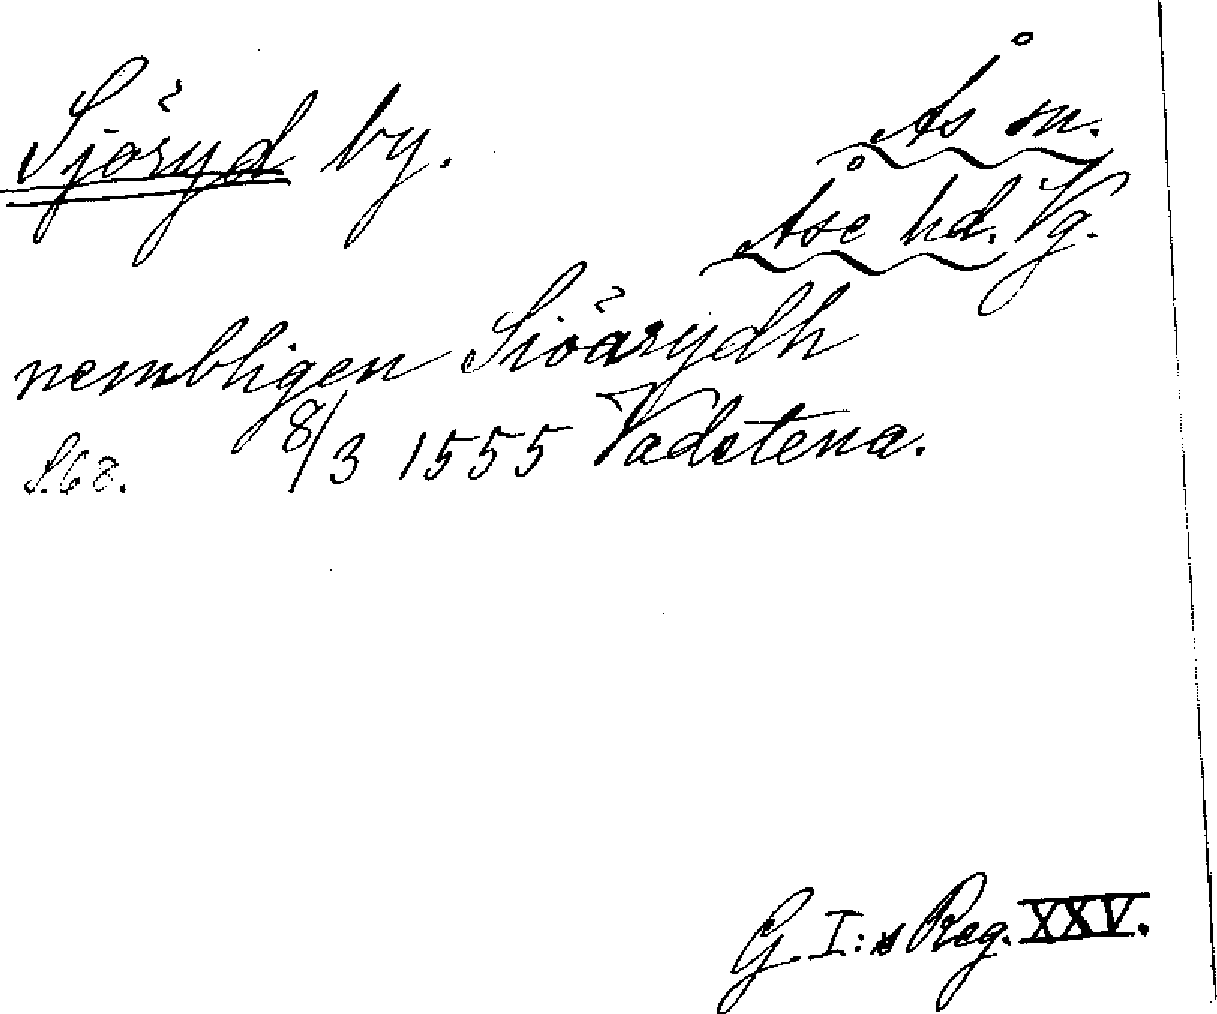 Sjöryd by.
Ås sn.
Åse hd. Vg.
nembligen Siöärydh
S.68. 8/3 1555 Vadstena.
G. I:s Reg. XXV.